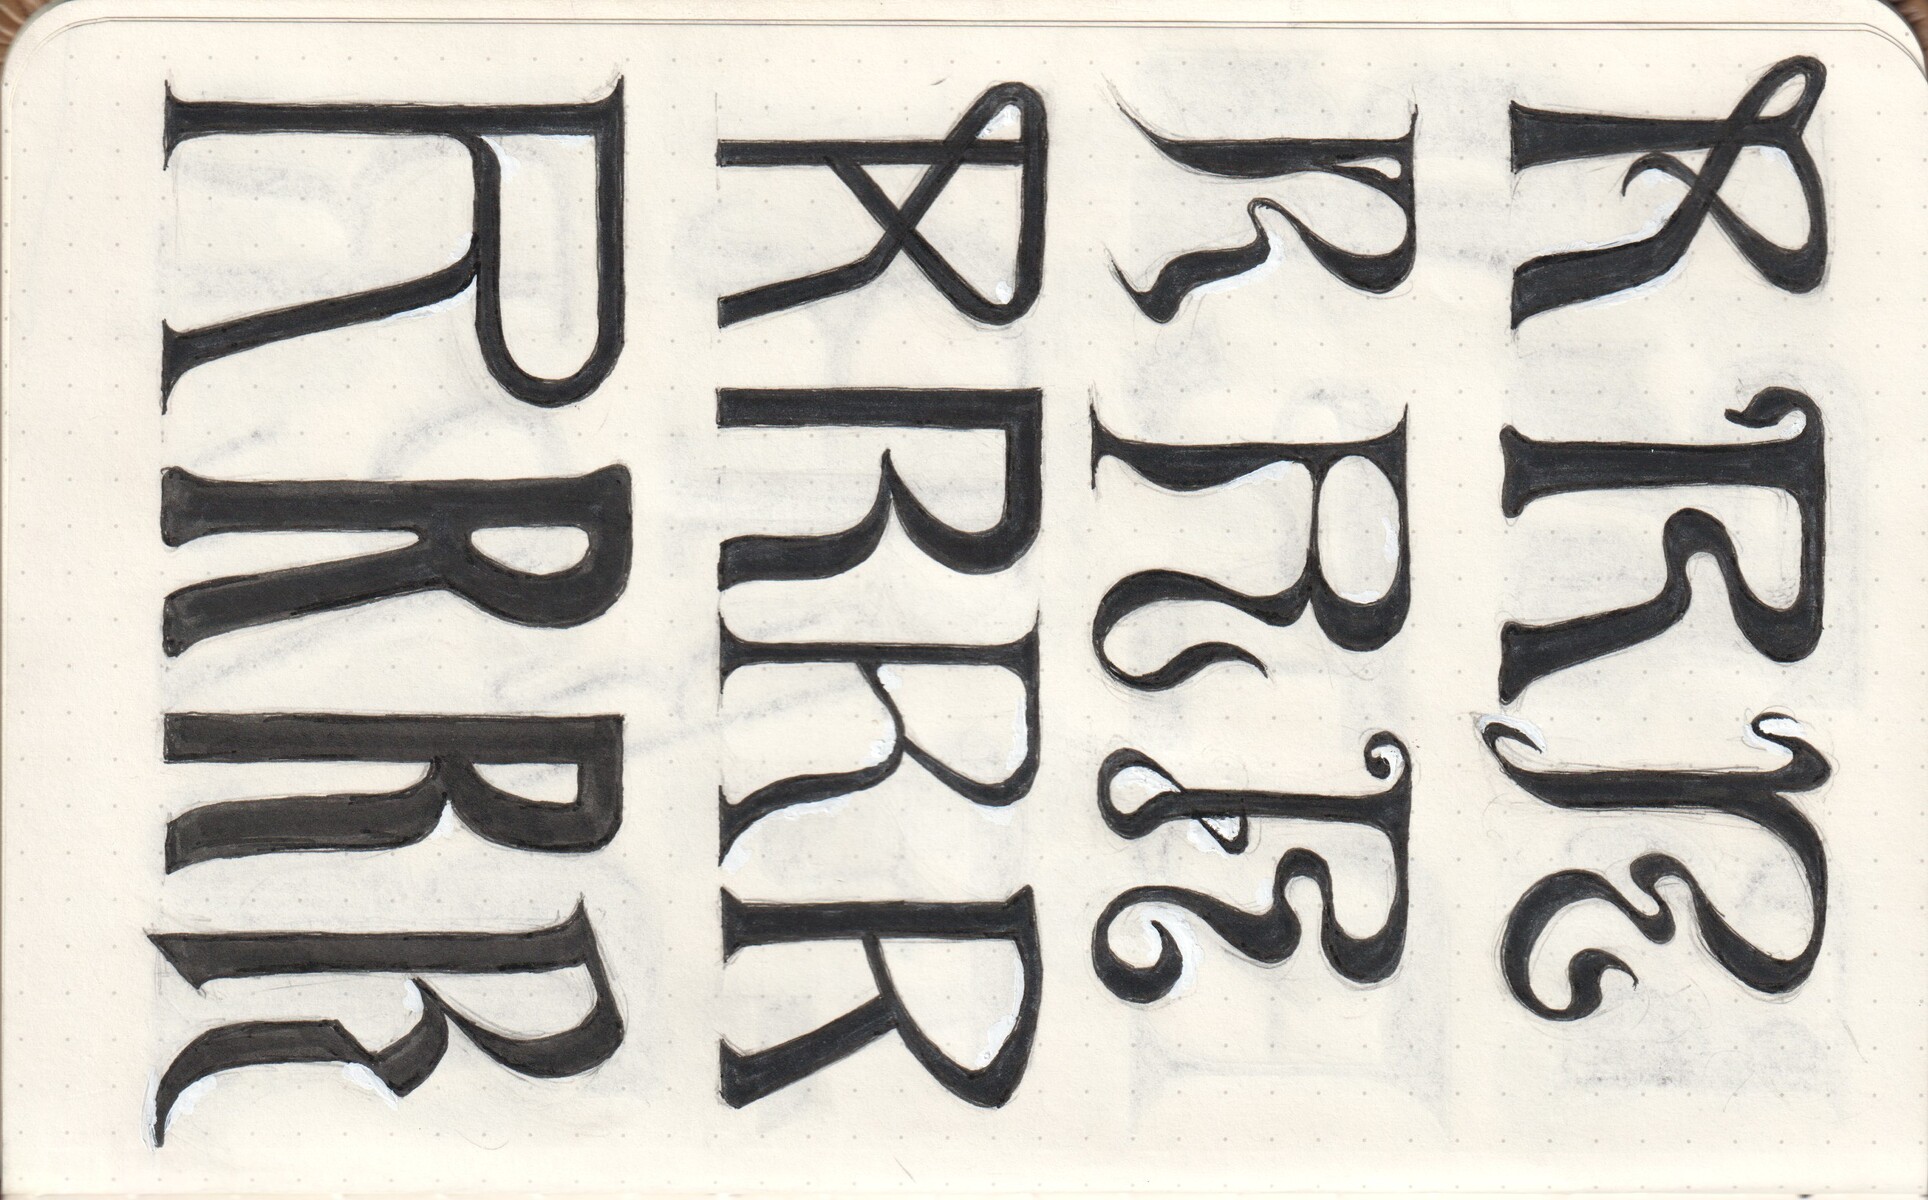 RRR
RRR
RRRR
RRRR